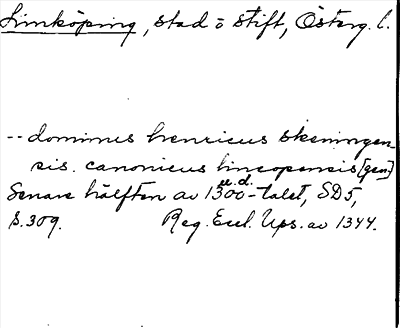 Linköping, stad o stift, Österg. l.
-- dominus henricus skeningen-
sis. canonicus lincopensis [gen]
Senare hälften av 1300-talet, SD5,
u.d.
S. 309. Reg. Eccl. Ups. av 1344.